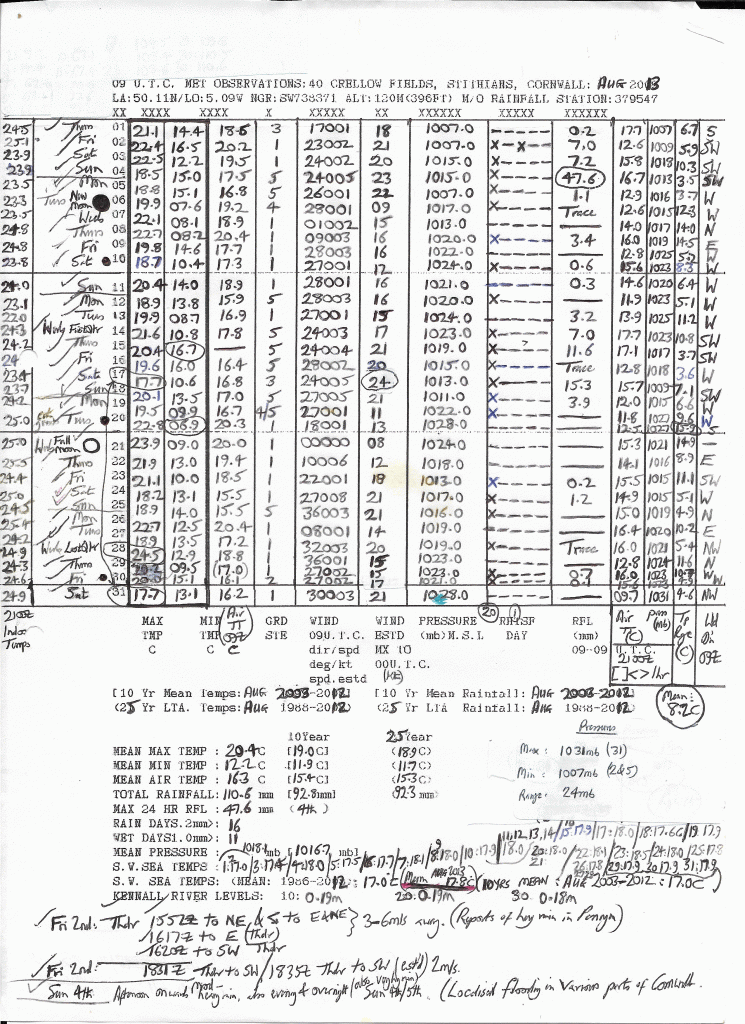 09 U.T.C. MET OBSERVATIONS:40 CRELLOW FIELDS, STITHIANS, CORNWALL: AUG 2013
LA:50.11N/LO:5.09W NGR:SW738371 ALT:120M(396FT) M/O RAINFALL STATION:379547
XX XXXX XXXX X XXXXX XX XXXXXX XXXXX XXXXXX
24.5 Thu 01 21.1 14.4 18.6 3 17001 18 1007.0 ------ 0.2 17.7 1007 6.7 S
25.1 Fri 02 22.4 16.5 20.2 1 23002 21 1007.0 --x--- 7.0 12.6 1009 5.9 SW
23.9 Sat 03 22.5 12.2 19.5 1 24002 20 1015.0 x----- 7.2 15.8 1018 10.3 SW
23.9 Sun 04 18.5 15.0 17.5 5 24005 23 1015.0 x----- 47.6 16.7 1013 3.5 SW
23.5 Mon 05 18.8 15.1 16.8 5 26001 22 1007.0 x----- 1.1 12.9 1016 3.7 W
23.3 Tues New Moon 06 19.9 07.6 19.2 4 28001 09 1017.0 x----- Trace 12.6 1015 12.3 W
23.5 Wed 07 22.1 08.1 18.9 1 01002 15 1013.0 ------ 14.0 1017 14.0 N
24.8 Thurs 08 22.7 08.2 20.4 1 09003 16 1020.0 x----- 3.4 16.0 1019 14.5 E
24.8 Fri 09 19.8 14.6 17.7 1 28003 16 1022.0 ------ 12.8 1025 5.2 W
23.8 Sat 10 18.7 10.4 17.3 1 27001 12 1024.0 x----- 0.6 15.6 1023 8.3 W
24.0 Sun 11 20.4 14.0 18.9 1 28001 16 1021.0 ------ 0.3 14.6 1020 6.4 W
23.1 Mon 12 18.9 13.8 15.9 5 28003 16 1020.0 x----- 11.9 1023 5.1 W
22.0 Tues 13 19.9 08.7 16.9 1 27001 15 1024.0 x----- 3.2 13.9 1025 11.2 W
24.3 Wed First Qtr 14 21.6 10.8 17.8 5 24003 17 1023.0 x----- 7.0 17.7 1023 10.8 SW
24.2 Thurs 15 20.4 16.7 — 5 24004 21 1019.0 x--?-- 11.6 17.1 1017 3.7 SW
24 Fri 16 19.6 16.0 16.4 5 28002 20 1015.0 x----- Trace 12.8 1018 3.6 W
23.4 Sat 17 17.7 10.6 16.8 3 24005 24 1013.0 x----- 15.3 15.7 1009 7.1 SW
23.7 Sun 18 20.1 13.5 17.0 5 27005 21 1011.0 x----- 3.9 12.0 1015 6.6 W
24.2 Mon 19.5 09.9 16.7 4/5 27001 11 1022.0 x----- 11.8 1027 9.6 W
25.0 Tues 20 22.8 06.9 20.3 1 18001 13 1028.0 ------ 12.5 1027 15.9 S
25.0 Wed Full Moon 21 23.9 09.0 20.0 1 00000 08 1024.0 ------ 15.3 1021 14.9
Thurs 22 21.9 13.0 19.4 1 10006 12 1018.0 ------ 14.1 1016 8.9 E
Fri 23 21.1 10.0 18.5 1 22001 18 1013.0 x----- 0.2 15.5 1015 11.1 SW
25.0 Sat 24 18.2 13.1 15.5 1 27008 21 1017.0 x----- 1.2 14.9 1015 5.1 W
24.5 Sun 25 18.9 14.0 15.5 5 36003 21 1016.0 ------ 15.0 1019 4.9 N
25.4 Mon 26 22.7 12.5 20.4 1 08001 14 1019.0 ------ 16.4 1020 10.2 E
24.9 Wed Last Qtr 28 24.5 12.9 18.8 1 32003 20 1019.0 ------ Trace 16.0 1021 5.4 NW
24.3 Thurs 29 09.5 17.0 1 36001 15 1023.0 x----- 12.8 1024 11.6 N
24.6 Fri 30 15.1 16.1 2 27002 17 1021.0 x----- 0.7 W
24.9 Sat 31 17.7 13.1 16.2 1 30003 21 1028.0 ------ 09.7 1031 4.6 NW
2100Z Indoor Temps
MAX TMP C
MIN TMP C
Air TT 09Z C
GRD STE
WIND 09U.T.C. dir/spd deg/kt spd.estd
WIND ESTD MX TO 00U.T.C. (kt)
PRESSURE (mb)M.S.L
20 1
DAY
RFL (mm) 09-09
Air T(C) prss (mb) Tp Rge (C) Wd Dir 09Z
U.T.C. 2100Z []<>/hr
[10 Yr Mean Temps: AUG 2003-2012 [10 Yr Mean Rainfall: AUG 2003-2012]
(25 Yr LTA. Temps: AUG 1988-2012 (25 Yr LTA Rainfall: AUG 1988-2012)
Mean: 8.2C
10Year 25Year
Pressures
MEAN MAX TEMP : 20.4C [19.0C] (18.9C)
Max : 1031mb (31)
MEAN MIN TEMP : 12.2C [11.9C] (11.7C)
MEAN AIR TEMP : 16.3 C [15.4C] (15.3C)
Min : 1007mb (2&5)
TOTAL RAINFALL: 110.6 mm [92.8mm] 92.3 mm)
Range : 24mb
MAX 24 HR RFL : 47.6 mm (4th)
RAIN DAYS.2mm>: 16
WET DAYS1.0mm>: 11
MEAN PRESSURE : 1018.1mb [1016.7 mb]
S.W.SEA TEMPS : 1:17.0/3:17.4/4:18.0/5:17.5/6:17.7/7:18.1/8:18.0/10:17.9/11,12,13,14/18.0/15:17.9/17:18.0/18:17.6C/19 17.9
20:18.0/ 21 22:18.1/23:18.5/24:18.0/25:17.8
29:17.9 30 17.9 31:17.9
S.W. SEA TEMPS: (MEAN: 1986-2012: 17.0C) (Mean AUG 2013 17.8C) (10YRS MEAN : AUG 2003-2012: 17.0C)
KENNALL RIVER LEVELS: 10: 0.19m 20: 0.19m 30 0.18m
Fri 2nd: Thdr 1552Z to NE, & S to E&NE } 3-6mls away. (Reports of hvy rain in Penryn)
1617Z to E (Thdr)
1620Z to SW Thdr
Fri 2nd: 1831Z Thdr to SW/1835Z Thdr to SW (est'd) 2mls.
Sun 4th Afternoon onwards Mod-heavy rain, also evening & overnight (also Sun 4th/5th. (Localised flooding in various parts of Cornwall.